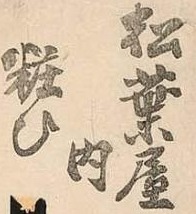 松葉屋
内
粧ひ